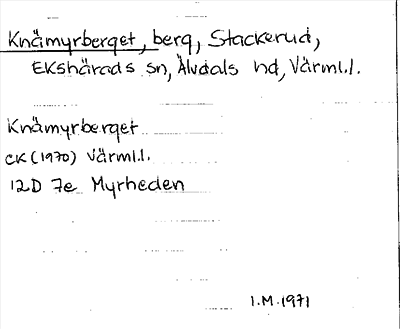 Knämyrberget, berg, Stackerud,
Ekshärads sn, Älvdals hd, Värml.l.
Knämyrberget
CK (1970) Värml.l.
12D 7e Myrheden
I.M. 1971